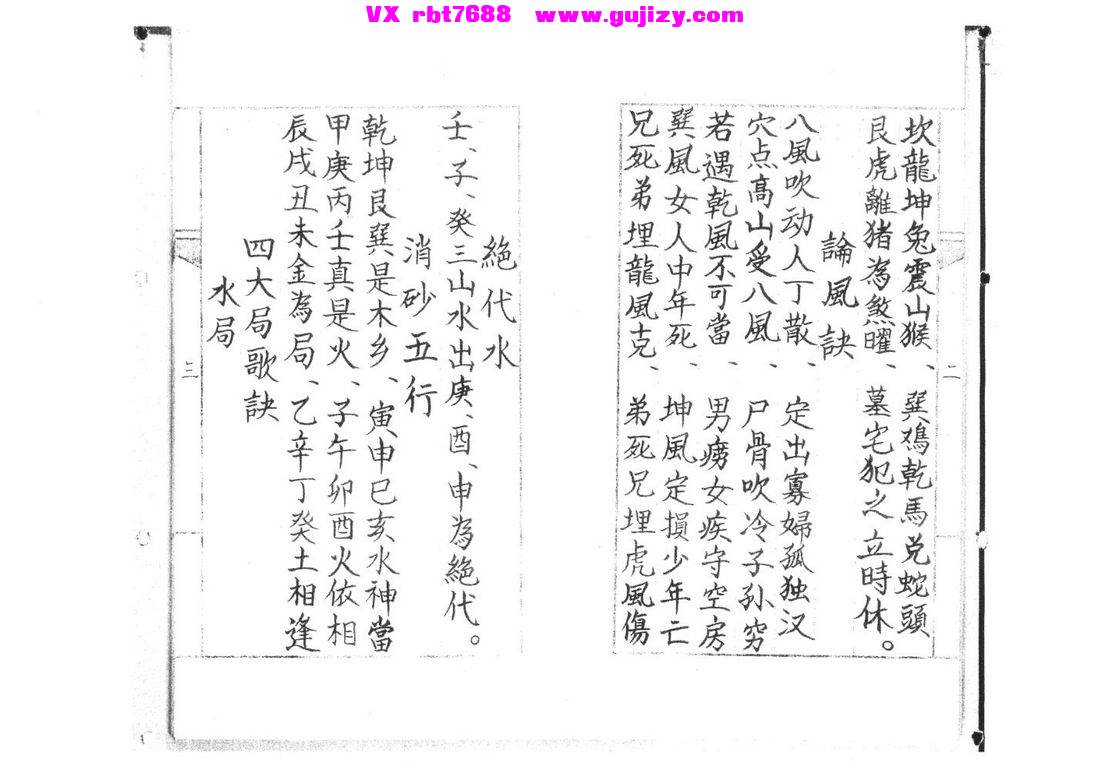 VX rbt7688 www.gujizy.com
坎龍坤兔震山猴、巽鳮乾馬兑蛇頭
艮虎離猪為煞曜、墓宅犯之立時休。
論風訣
八風吹动人丁散、定出寡婦孤独汉
穴点高山受八風、尸骨吹冷子孙穷
若遇乾風不可當、男痨女疾守空房
巽風女人中年死、坤風定損少年亡
兄死弟埋龍風克、弟死兄埋虎風傷
二
絕代水
壬、子、癸三山水出庚、酉、申為絕代。
消砂五行
乾坤艮巽是木乡、寅申巳亥水神當
甲庚丙壬真是火、子午卯酉火依相
辰戌丑未金為局、乙辛丁癸土相逢
四大局歌訣
水局
三